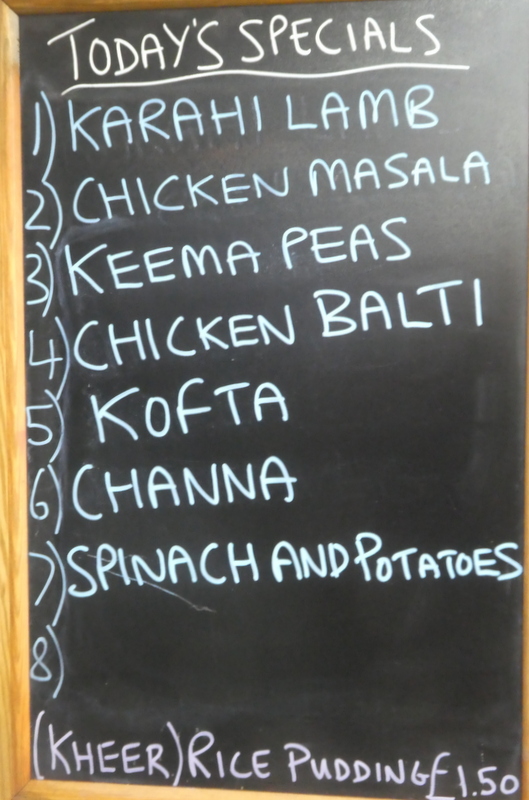 TODAY'S SPECIALS
1) KARAHI LAMB
2) CHICKEN MASALA
3) KEEMA PEAS
4) CHICKEN BALTI
5) KOFTA
6) CHANNA
7) SPINACH AND POTATOES
8)
(KHEER) RICE PUDDING £1.50